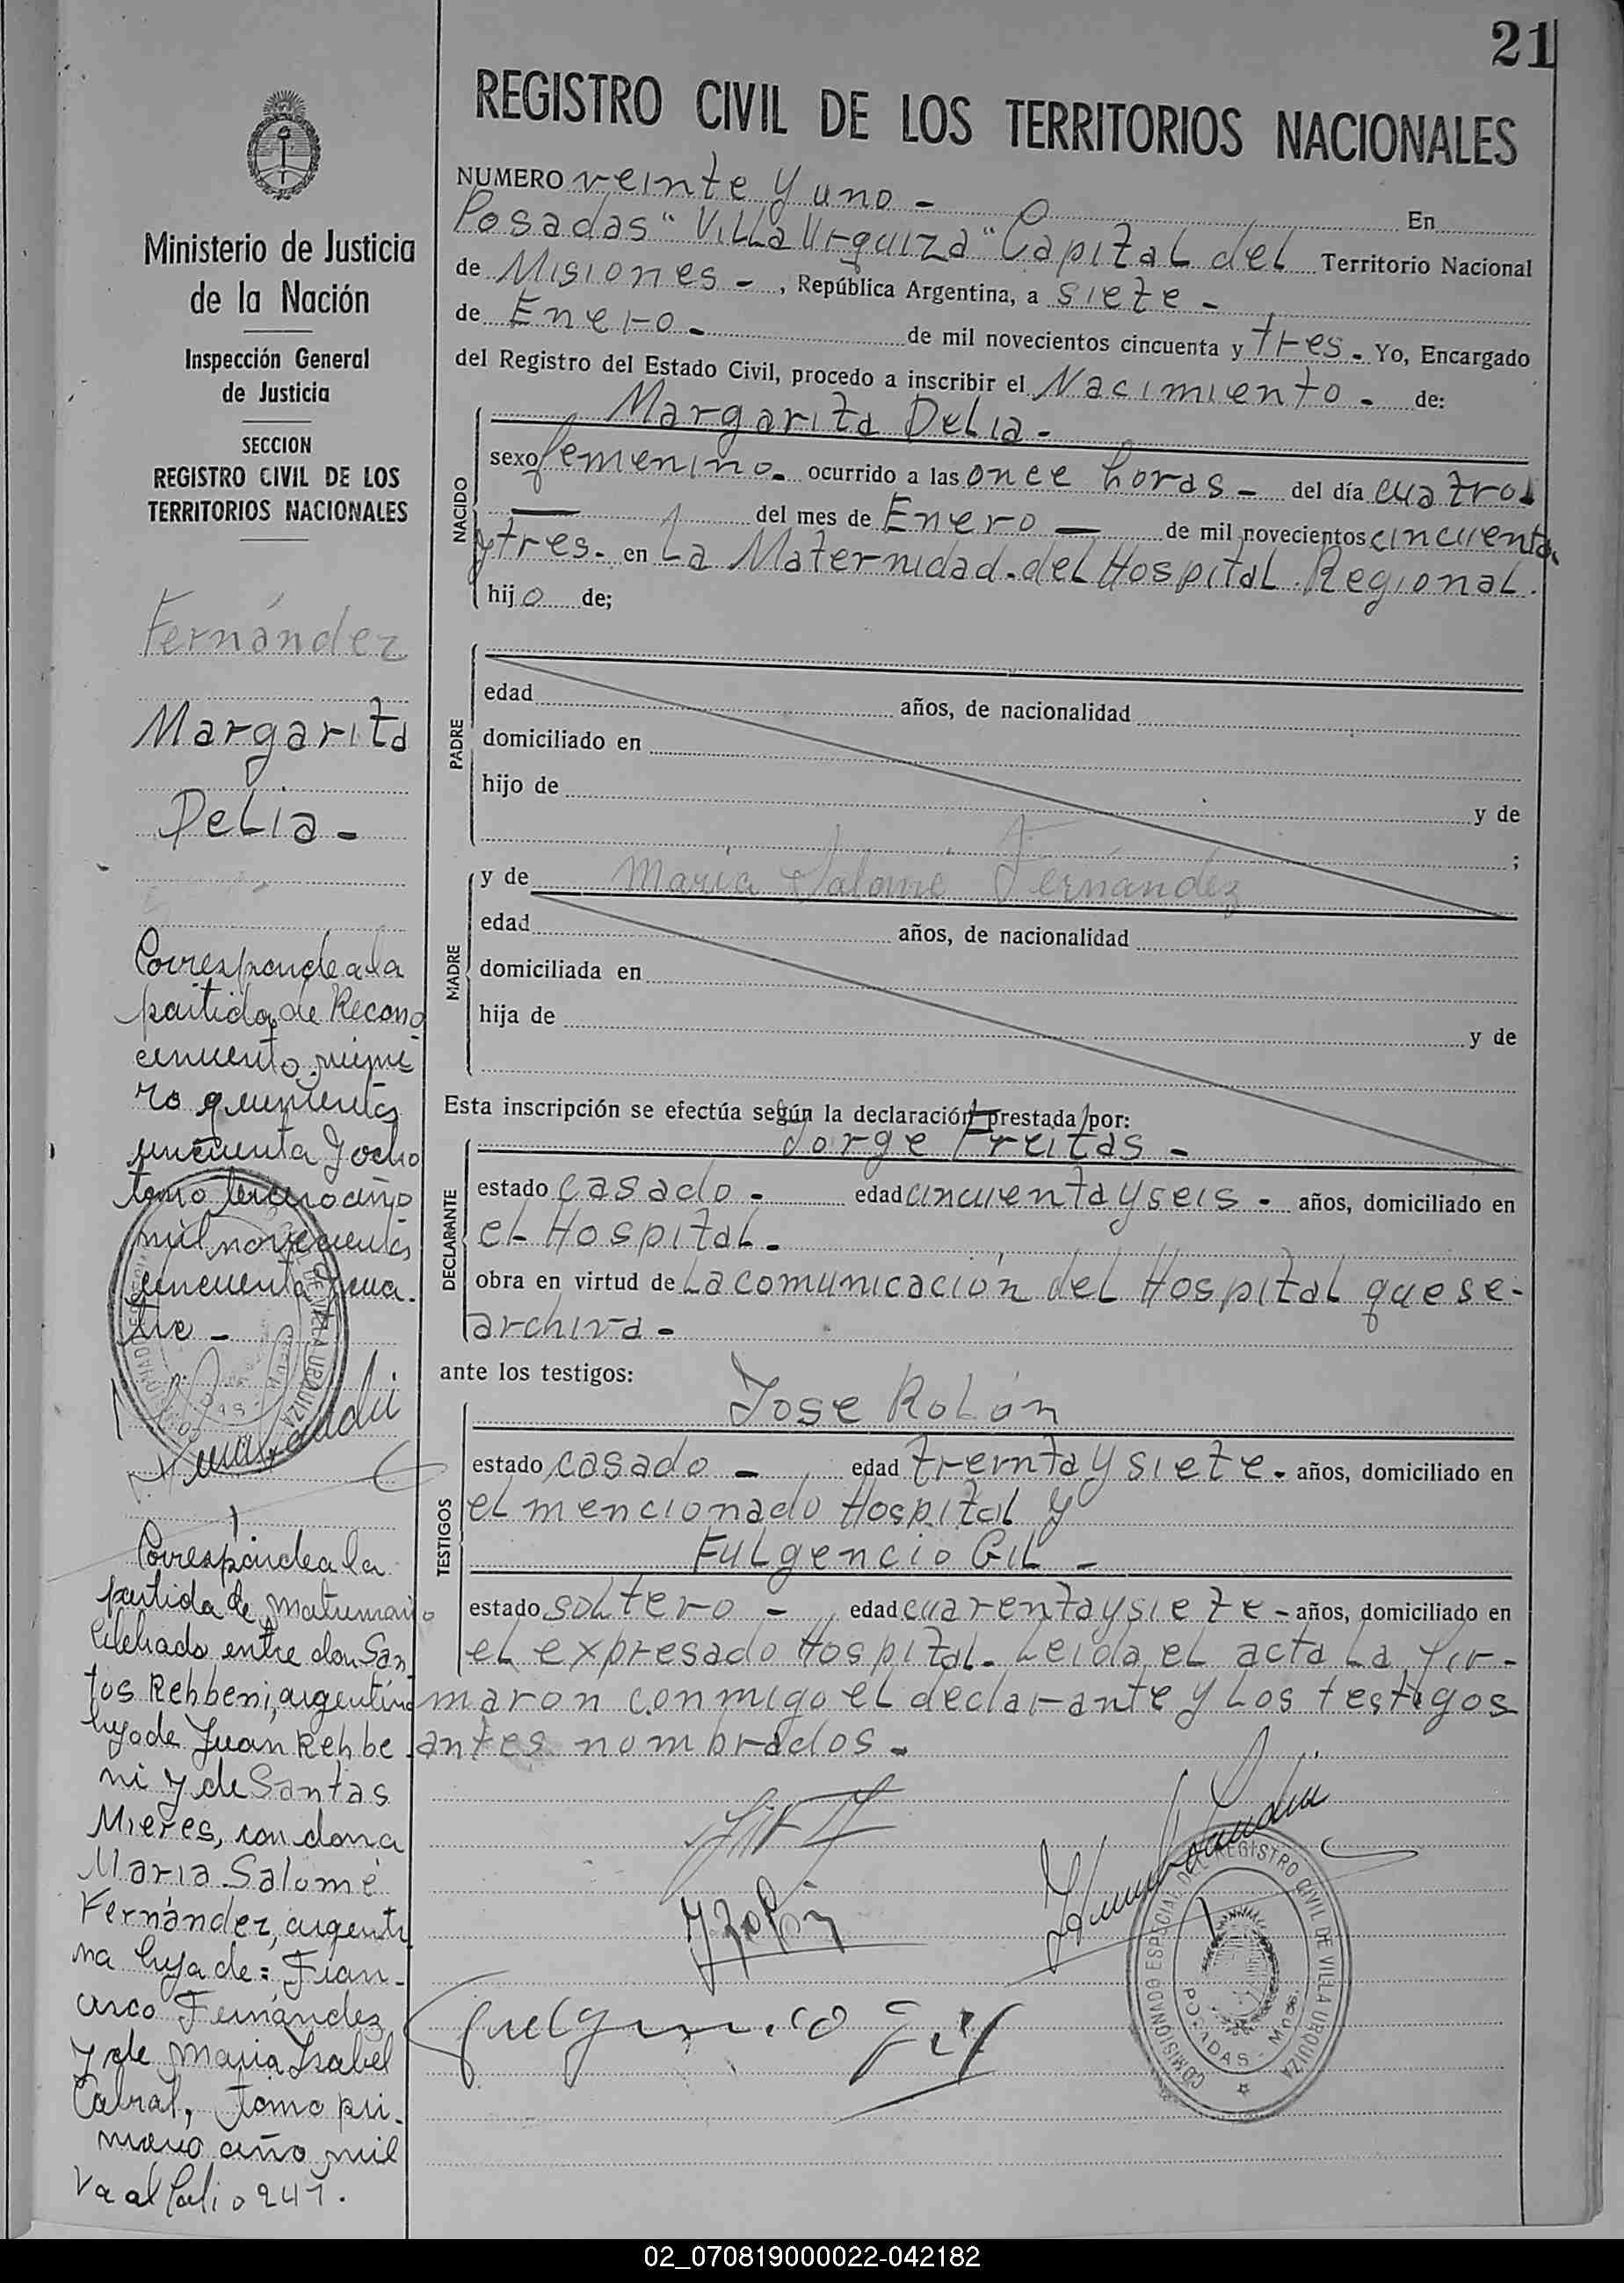 21
REGISTRO CIVIL DE LOS TERRITORIOS NACIONALES
NUMERO veinte y uno - En
Posadas "Villa Urquiza" Capital del Territorio Nacional
de Misiones - , República Argentina, a siete -
de Enero - de mil novecientos cincuenta y tres - Yo, Encargado
del Registro del Estado Civil, procedo a inscribir el Nacimiento - de:
NACIDO
Margarita Delia -
sexo femenino - ocurrido a las once horas - del día cuatro -
— del mes de Enero — de mil novecientos cincuenta
y tres - en La Maternidad del Hospital Regional.
hijo de;
PADRE
edad años, de nacionalidad
domiciliado en
hijo de y de
;
MADRE
y de María Salomé Fernández
edad años, de nacionalidad
domiciliada en
hija de y de
Esta inscripción se efectúa según la declaración prestada por:
DECLARANTE
Jorge Freitas -
estado casado - edad cincuenta y seis - años, domiciliado en
el Hospital -
obra en virtud de la comunicación del Hospital que se -
archiva -
ante los testigos:
TESTIGOS
Jose Rolón
estado casado - edad treinta y siete - años, domiciliado en
el mencionado Hospital y
Fulgencio Gil -
estado soltero - edad cuarenta y siete - años, domiciliado en
el expresado Hospital. Leida el acta la fir-
maron conmigo el declarante y los testigos
antes nombrados -
Fulgencio Gil
COMISIONADO ESPECIAL DEL REGISTRO CIVIL DE VILLA URQUIZA
POSADAS - Mnes.
Ministerio de Justicia
de la Nación
Inspección General
de Justicia
SECCION
REGISTRO CIVIL DE LOS
TERRITORIOS NACIONALES
Fernández
Margarita
Delia -
Corresponde a la
partida de Recono
cimiento núme
ro quinientos
cincuenta y ocho
tomo tercero año
mil novecientos
cincuenta y cua-
tro -
Corresponde a la
partida de matrimonio
celebrado entre don San-
tos Rehbeni, argentino
hijo de Juan Rehbe
ni y de Santas
Mieres, con doña
Maria Salomé
Fernández, argenti
na hija de: Fran-
cisco Fernández
y de Maria Isabel
Cabral, tomo pri-
mero año mil
Va al folio 247.
02_070819000022-042182